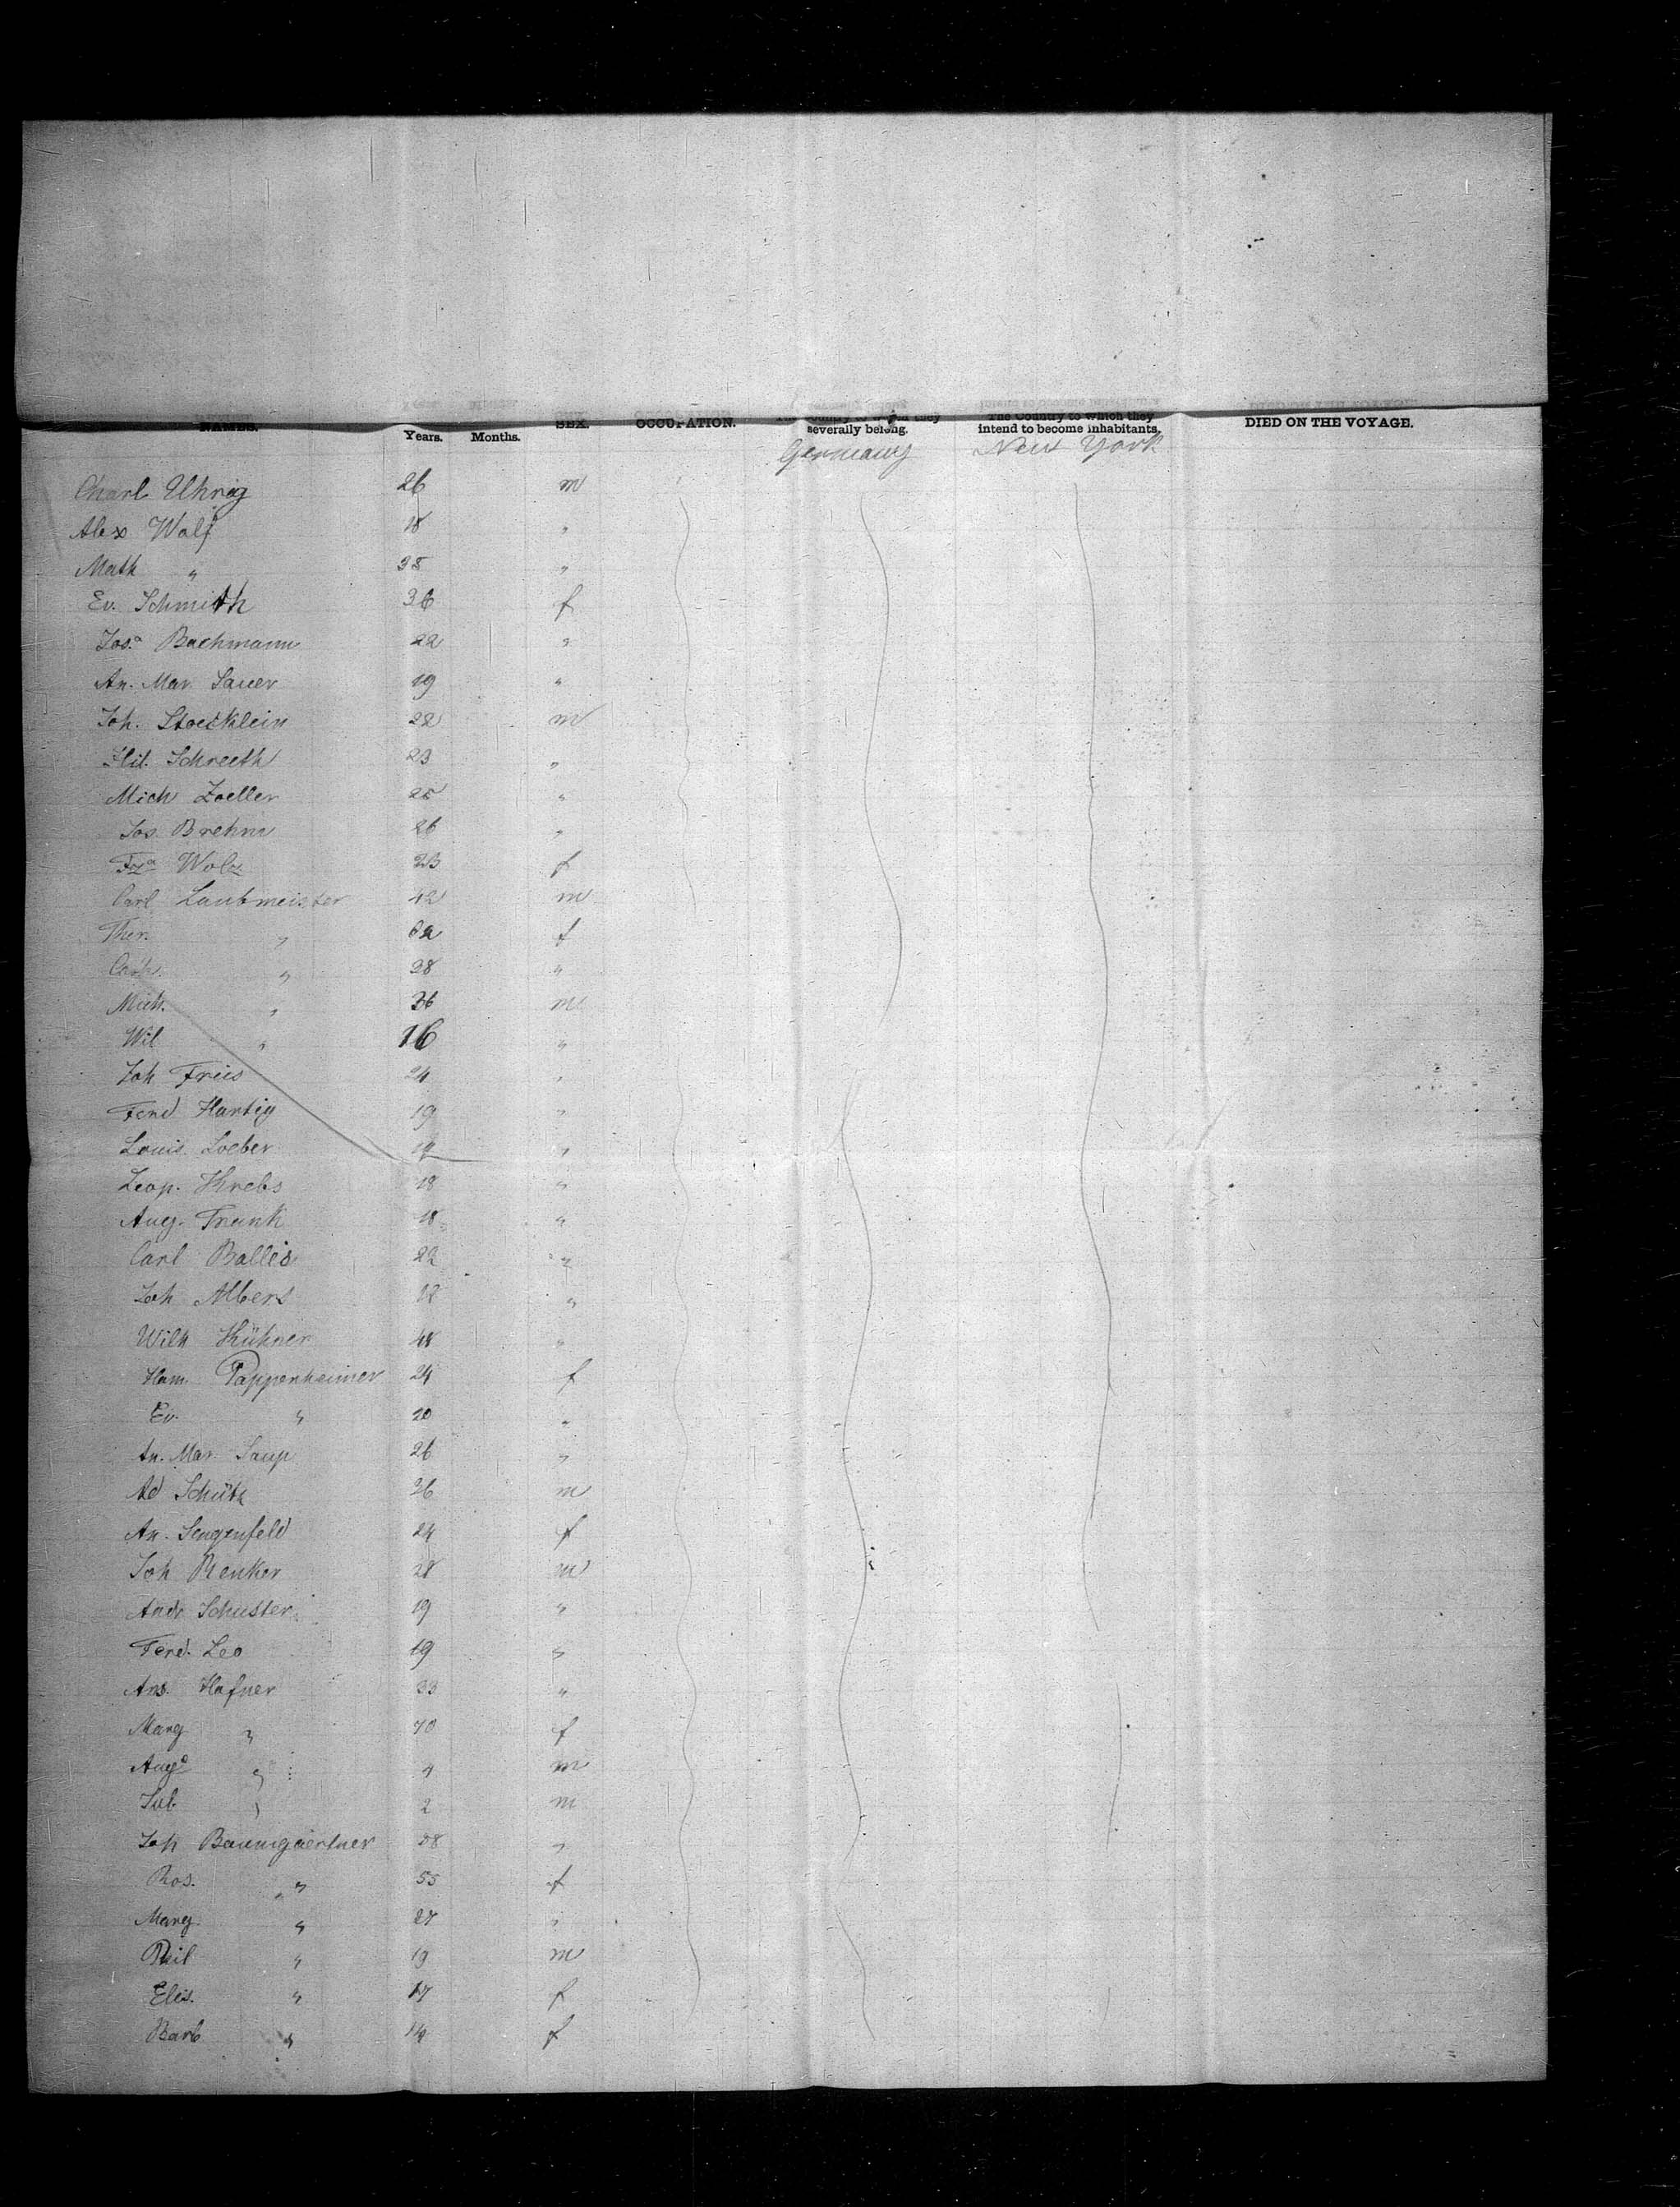 NAMES. Years. Months. SEX. OCCUPATION. severally belong. The Country to which they intend to become inhabitants. DIED ON THE VOYAGE.
Germany New York
Charl Uhrig 26 m
Alex Wolf 18 "
Math " 38 "
Ev. Schmith 36 f
Josa Bachmann 22 "
An. Mar Sauer 19 "
Joh. Stoecklein 22 m
Hil. Schreeth 23 "
Mich Zoeller 25 "
Jos. Brehm 26 "
Fza Wolz 23 f
Carl Laubmeister 42 m
Ther. " f
Cath. " 38 "
Mich. " 36 m
Wil " 16 "
Joh Fries 24 "
Ferd Hartig 19 "
Louis Loeber "
Leop. Krebs 18 "
Aug. Frank 18 "
Carl Balles 22 "
Joh Albers "
Wilh Kühner 48 "
Ham. Pappenheimer 24 f
Ev. " 20 "
An. Mar. Saup 26 "
Ad Schütz 36 m
An. Sengenfeld 24 f
Joh Renker 28 m
Andr Schuster 19 "
Ferd. Leo 19 "
Ans. Hafner 33 "
Marg " f
Auge " 4 m
" 2 m
Joh Baumgaertner 58 "
Ros. " 55 f
Marg. " 27 "
" 19 m
Elis. " 17 f
Barb " 14 f